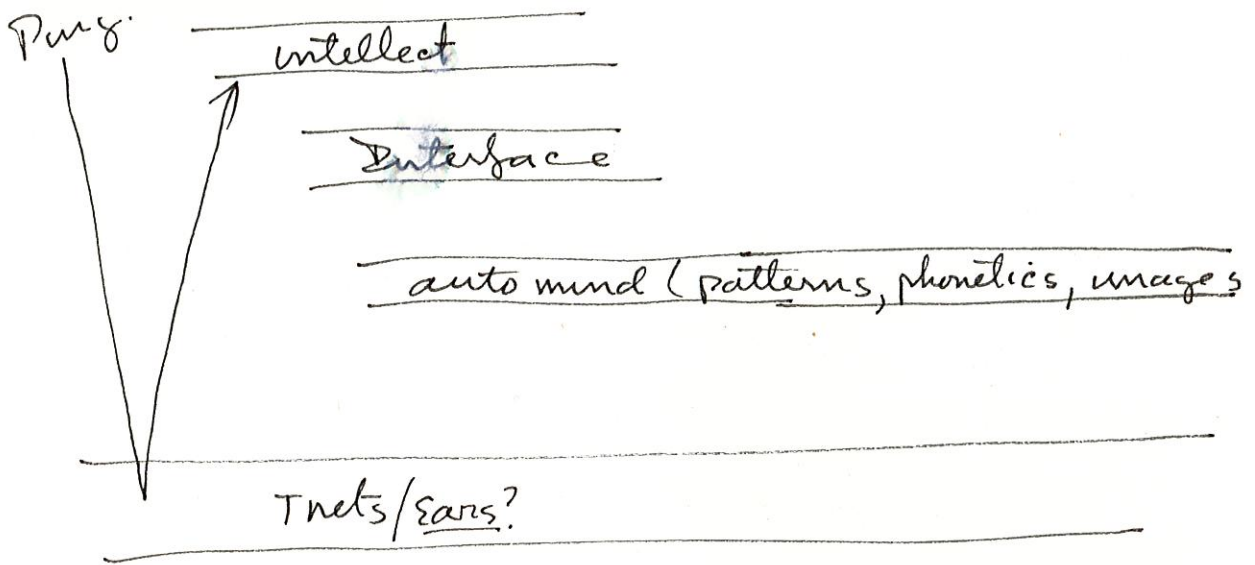 Ping.
intellect
Interface
auto mind (patterns, phonetics, images
Tnets/Ears?